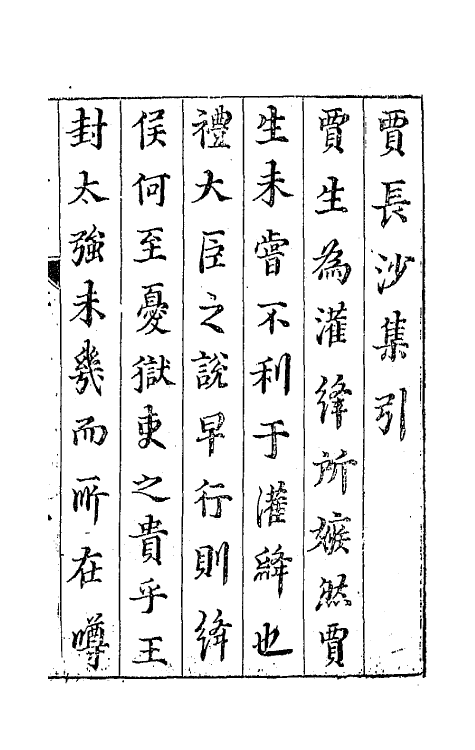 賈長沙集引
賈生為灌絳所嫉然賈
生未嘗不利于灌絳也
禮大臣之說早行則絳
侯何至憂獄吏之貴乎王
封太強未幾而所在噂